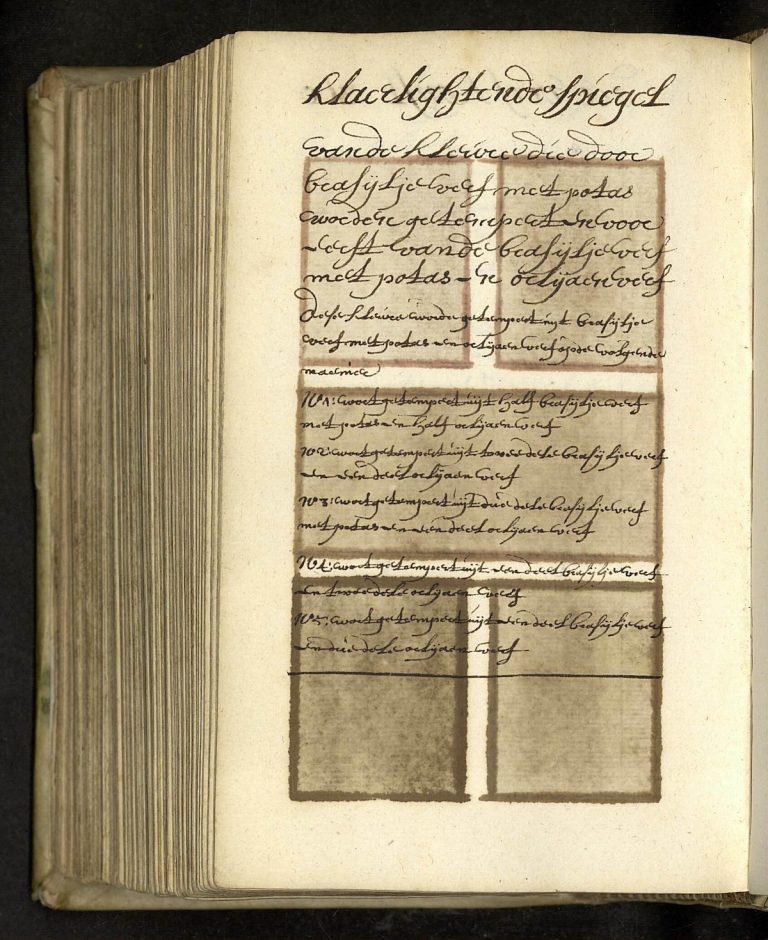 klaerlightende spiegel
vande kleure die door
brasijlje verf met potas
worden getempert en voor
eerst vande brasijlje verf
met potas en orlijaen verf
Dese kleure worde getempert uijt brasijlje
verf met potas en orlijaen verf op de volgende
maenier
N°1: wort getempert uijt half brasijlje verf
met potas en half orlijaen verf
N°2: wort getempert uijt twee dele brasijlje verf
en een deel orlijaen verf
N°3: wort getempert uijt drie dele brasijlje verf
met potas en een deel orlijaen verf
N°4: wort getempert uijt een deel brasijlje verf
en twee dele orlijaen verf
N°5: wort getempert uijt een deel brasijlje verf
en drie dele orlijaen verf